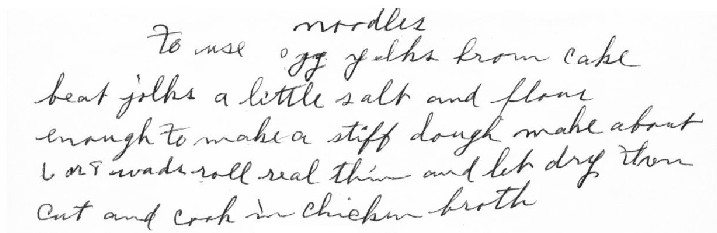 noodles
To use egg yolks from cake
beat yolks a little salt and flour
enough to make a stiff dough make about
6 or 8 wads roll real thin and let dry then
cut and cook in chicken broth